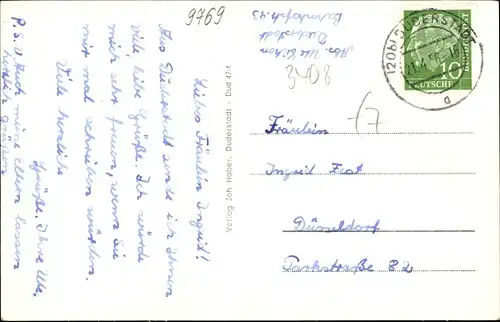 9769
Liebes Fräulein Ingrid!
Aus Duderstadt sende ich Ihnen
viele liebe Grüße. Ich würde
mich sehr freuen, wenn Sie
mir mal schreiben würden.
Viele herzliche
Grüße. Ihre Ute.
P.S. Auch meine Eltern lassen
herzlich grüßen
Verlag Joh. Haber, Duderstadt - Dud 47-1
Abs. Ute
Duderstadt
Bahnhofstr. 43
3408
(20b) DUDERSTADT
a
10
DEUTSCHE
17
Fräulein
Ingrid Fest
Düsseldorf
Parkstraße 82